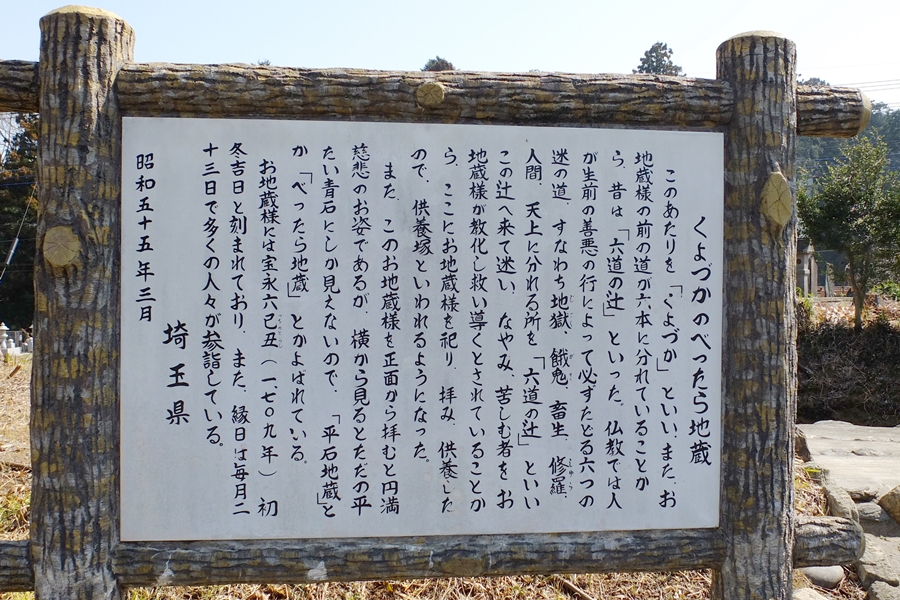 くよづかのべったら地蔵
このあたりを「くよづか」といい、また、お
地蔵様の前の道が六本に分れていることか
ら、昔は「六道の辻」といった。仏教では人
が生前の善悪の行によって必ずたどる六つの
迷の道、すなわち地獄、餓鬼、畜生、修羅、
人間、天上に分れる所を「六道の辻」といい
この辻へ来て迷い、なやみ、苦しむ者をお
地蔵様が教化し救い導くとされていることか
ら、ここにお地蔵様を祀り、拝み、供養した
ので、供養塚といわれるようになった。
また、このお地蔵様を正面から拝むと円満
慈悲のお姿であるが、横から見るとただの平
たい青石にしか見えないので、「平石地蔵」と
か「べったら地蔵」とかよばれている。
お地蔵様には宝永六己丑(一七〇九年)初
冬吉日と刻まれており、また、縁日は毎月二
十三日で多くの人々が参詣している。
昭和五十五年三月
埼玉県